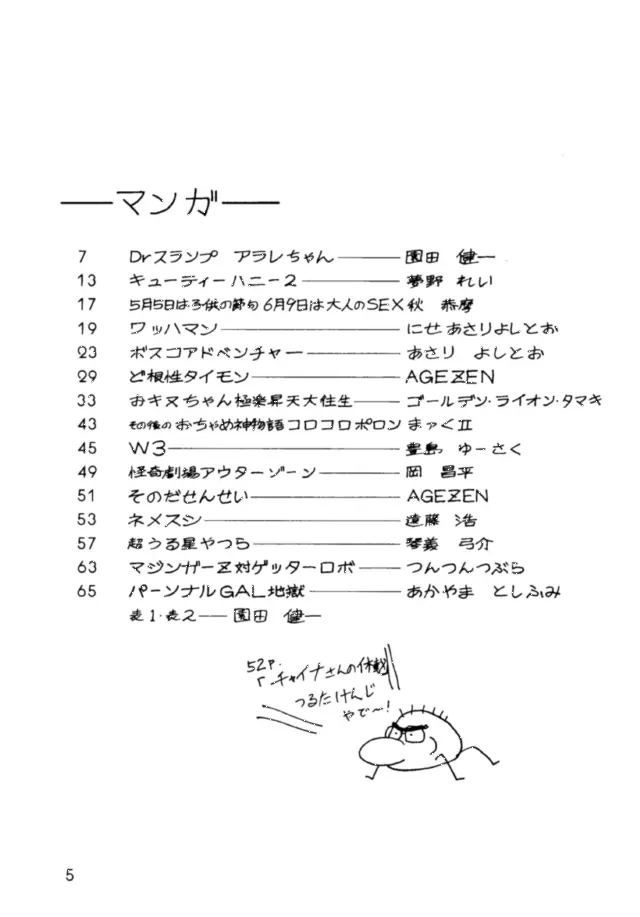 ——マンガ——
7 Drスランプ アラレちゃん——園田 健一
13 キューティーハニー2——夢野 れい
17 5月5日は子供の節句6月9日は大人のSEX 秋 恭摩
19 ワッハマン——にせ あさりよしとお
23 ボスコアドベンチャー——あさり よしとお
29 ど根性タイモン——AGEZEN
33 おキヌちゃん極楽昇天大往生——ゴールデン・ライオン・タマキ
43 その後のおちゃめ神物語コロコロポロン まぁくII
45 W3——豊島 ゆーさく
49 怪奇劇場アウターゾーン——岡 昌平
51 そのだせんせい——AGEZEN
53 ネメスシ——遠藤 浩
57 超うる星やつら——琴義 弓介
63 マジンガーZ対ゲッターロボ——つんつんつぶら
65 パーソナルGAL地獄——あかやま としふみ
表1・表2——園田 健一
52P.
「チャイナさんの休戦
つるたけんじ
やで〜!
5